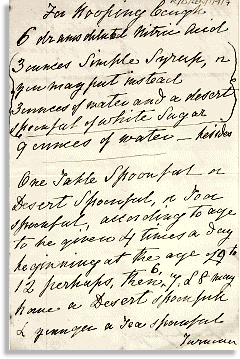 For Hooping Cough
6 drams diluted Nitric Acid
3 ounces Simple Syrup, or
you may put instead
3 ounces of water and a desert
spoonful of white Sugar
9 ounces of water — besides
One Table Spoonful or
Desert Spoonful, or Tea
spoonful, according to age
to be given 4 times a day
beginning at the age of 9 to
12 perhaps, then 6, 7, & 8 may
have a Desert Spoonful
& younger a Tea spoonful
Turnover